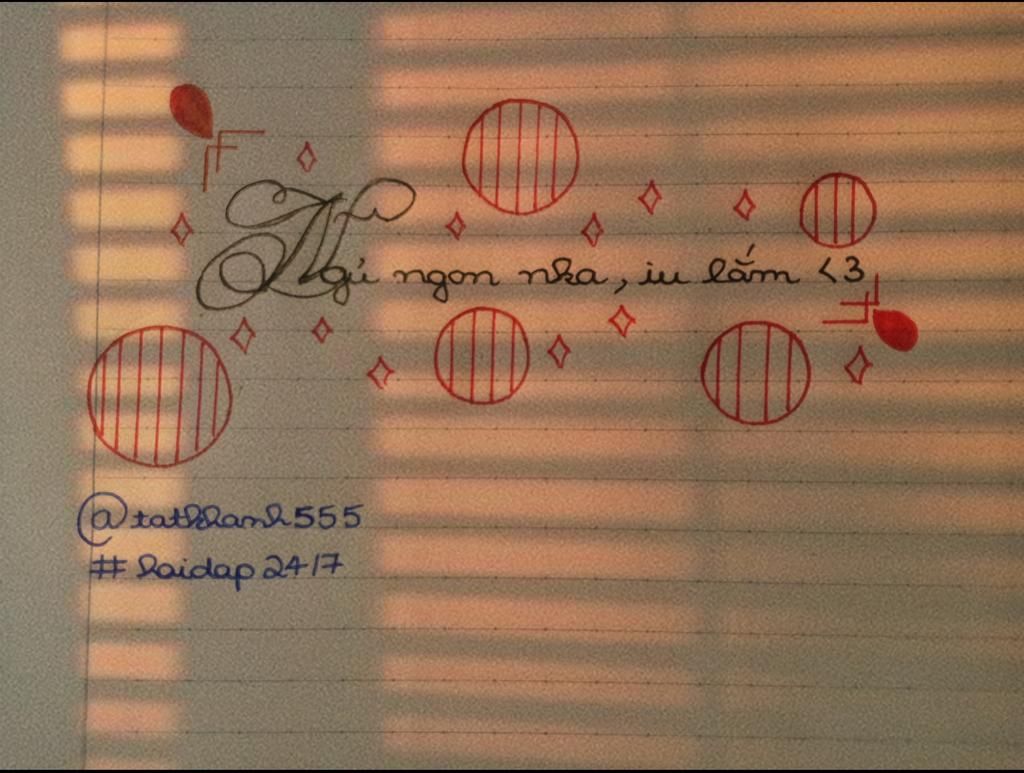 Ngủ ngon nha, iu lắm <3
@tatkhanh555
#hoidap24/7